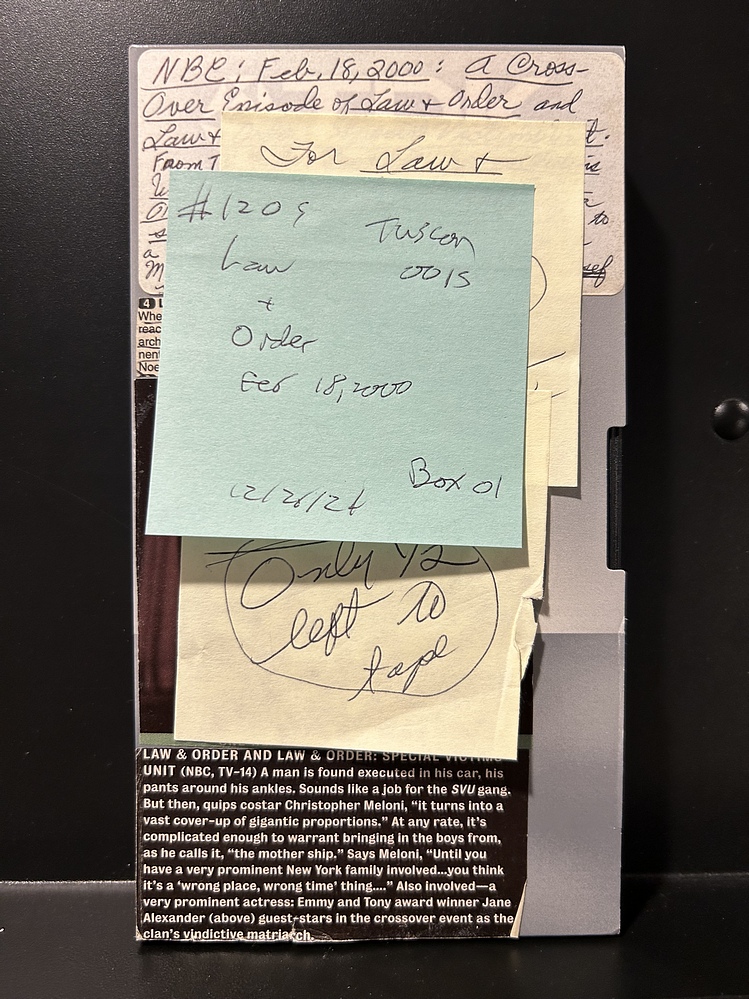 NBC; Feb. 18, 2000: A Cross-
Over Episode of Law + Order and
Law +
t.
From T
is
to
a
For Law +
#1209
Tuscon
0015
Law
+
Order
Feb 18, 2000
Box 01
12/26/24
Only 1/2
left to
tape
4 L
Whe
reac
arch
nent
Noe
LAW & ORDER AND LAW & ORDER: SPECIAL VICTIMS
UNIT (NBC, TV-14) A man is found executed in his car, his
pants around his ankles. Sounds like a job for the SVU gang.
But then, quips costar Christopher Meloni, “it turns into a
vast cover-up of gigantic proportions.” At any rate, it’s
complicated enough to warrant bringing in the boys from,
as he calls it, “the mother ship.” Says Meloni, “Until you
have a very prominent New York family involved...you think
it’s a ‘wrong place, wrong time’ thing....” Also involved—a
very prominent actress: Emmy and Tony award winner Jane
Alexander (above) guest-stars in the crossover event as the
clan’s vindictive matriarch.